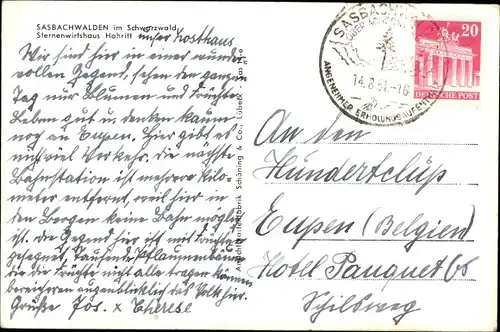 SASBACHWALDEN im Schwarzwald
Sternenwirtshaus Hohritt unser Kosthaus
Wir sind hier in einer wunder
vollen Gegend, sehen den ganzen
Tag nur Blumen und Früchte
Leben gut u. denken kaum
nog an Eupen. Hier gibt es
nicht viel Verkehr. die nächste
Bahnstation ist mehrere Kilo
meter entfernt, weil hier in
den Bergen keine Bahn moglig
ist. die Gegend hier ist mit Früchten
gesegnet, Tausende Pflaumenbäume
die die Früchte nicht alle tragen können
bereicheren augenbliklich das Volk hier.
Grüße Jos. x Therese
Schöning & Co., Lübeck
SASBACHWALDEN
ÜBER ACHERN
14.8.51.-16
ANGENEHMER ERHOLUNGSAUFENTHALT
20
DEUTSCHE POST
An den
Hündertclüp
Eupen (Belgien)
Hotel Pauquet 65
Schilsweg